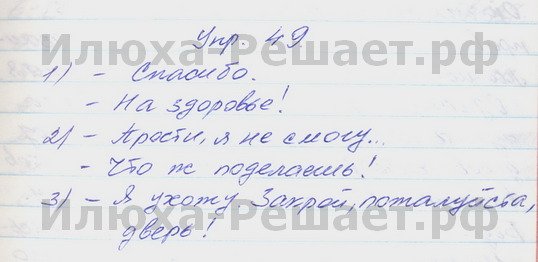 Илюха-Решает.рф
Упр. 49
1) - Спасибо.
- На здоровье!
2) - Прости, я не смогу...
- Что ж поделаешь!
3) - Я ухожу. Закрой, пожалуйста,
дверь!
Илюха-Решает.рф